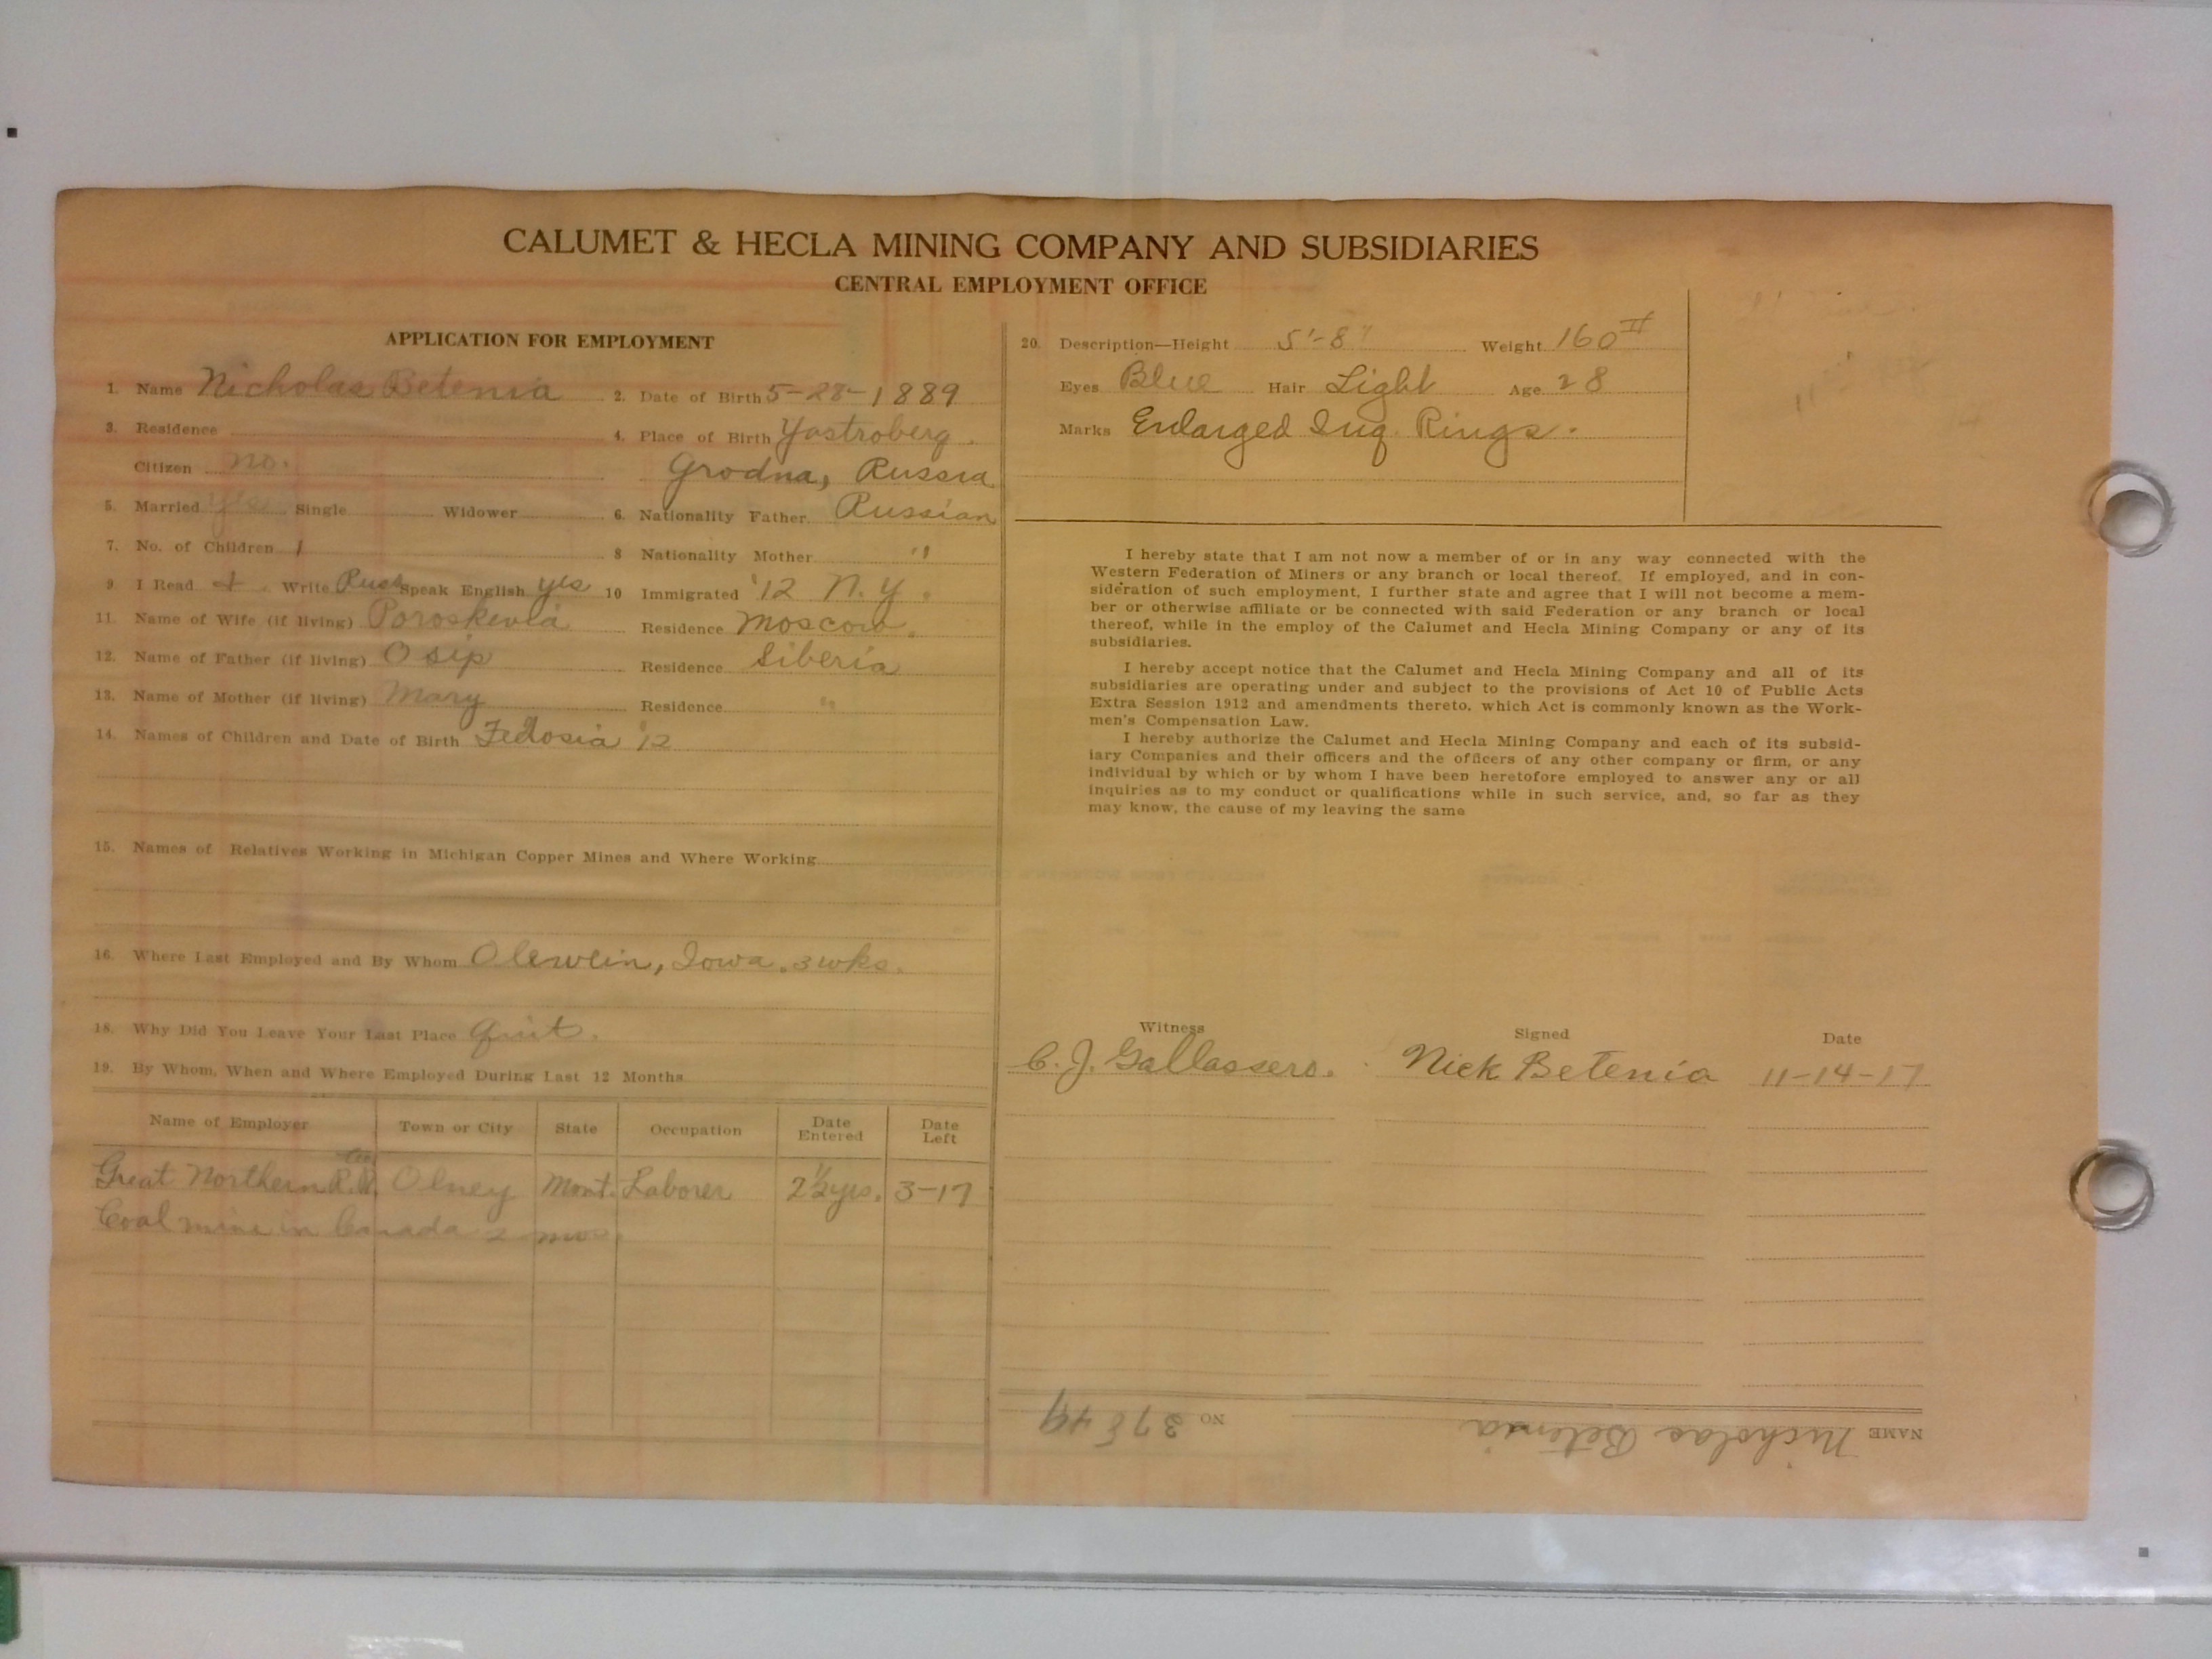 CALUMET & HECLA MINING COMPANY AND SUBSIDIARIES
CENTRAL EMPLOYMENT OFFICE
APPLICATION FOR EMPLOYMENT
1. Name Nicholas Betenia 2. Date of Birth 5-28-1889
3. Residence 4. Place of Birth Yostroberg.
Citizen no. Grodna, Russia
5. Married Yes Single Widower 6. Nationality Father Russian
7. No. of Children 1 8 Nationality Mother "
9. I Read + Write Russ Speak English yes 10 Immigrated '12 N.Y.
11. Name of Wife (if living) Poroskevia Residence Moscow.
12. Name of Father (if living) Osip Residence Siberia
13. Name of Mother (if living) Mary Residence "
14. Names of Children and Date of Birth Fedosia '12
15. Names of Relatives Working in Michigan Copper Mines and Where Working
16. Where Last Employed and By Whom Olewein, Iowa. 3 wks.
18. Why Did You Leave Your Last Place Quit.
19. By Whom, When and Where Employed During Last 12 Months
Name of Employer Town or City State Occupation Date Entered Date Left
Great Northern R.R. Olney Mont. Laborer 2½ yrs. 3-17
Coal mine in Canada 2 mos.
20. Description—Height 5'-8" Weight 160
Eyes Blue Hair Light Age 28
Marks Enlarged Ing. Rings.
I hereby state that I am not now a member of or in any way connected with the
Western Federation of Miners or any branch or local thereof. If employed, and in con-
sideration of such employment, I further state and agree that I will not become a mem-
ber or otherwise affiliate or be connected with said Federation or any branch or local
thereof, while in the employ of the Calumet and Hecla Mining Company or any of its
subsidiaries.
I hereby accept notice that the Calumet and Hecla Mining Company and all of its
subsidiaries are operating under and subject to the provisions of Act 10 of Public Acts
Extra Session 1912 and amendments thereto, which Act is commonly known as the Work-
men's Compensation Law.
I hereby authorize the Calumet and Hecla Mining Company and each of its subsid-
iary Companies and their officers and the officers of any other company or firm, or any
individual by which or by whom I have been heretofore employed to answer any or all
inquiries as to my conduct or qualifications while in such service, and, so far as they
may know, the cause of my leaving the same
Witness Signed Date
C. J. Gallassero. Nick Betenia 11-14-17
NAME Nicholas Betenia NO 37849